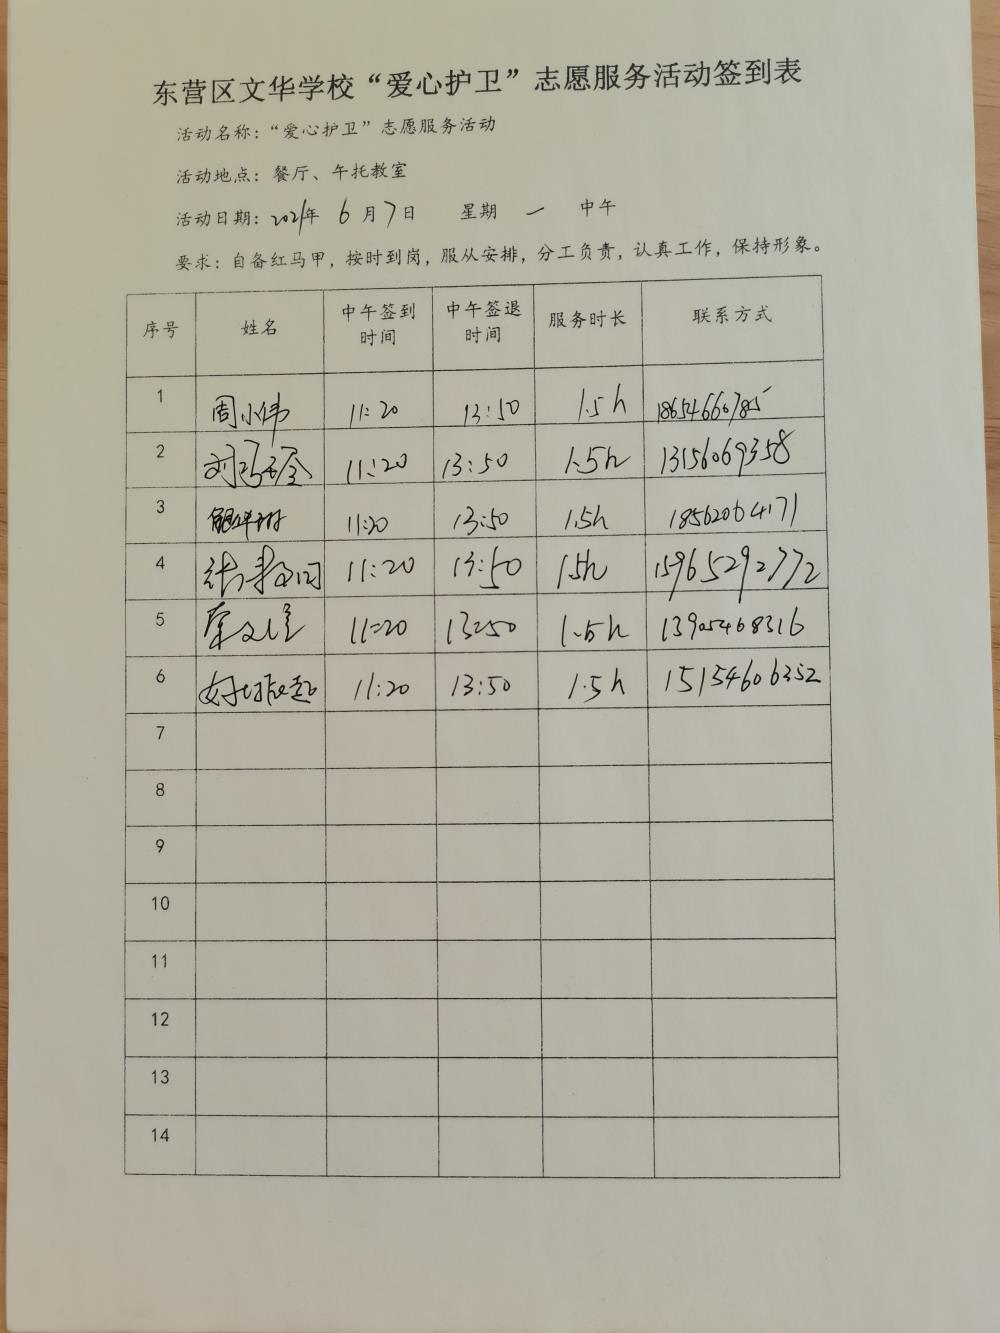 东营区文华学校“爱心护卫”志愿服务活动签到表
活动名称：“爱心护卫”志愿服务活动
活动地点：餐厅、午托教室
活动日期：2021年 6月7日 星期 一 中午
要求：自备红马甲，按时到岗，服从安排，分工负责，认真工作，保持形象。
序号 姓名 中午签到时间 中午签退时间 服务时长 联系方式
1 周小伟 11:20 13:50 1.5h 18654660785
2 11:20 13:50 1.5h 13156069358
3 11:20 13:50 1.5h 18562064171
4 11:20 13:50 1.5h 15965292772
5 11:20 13:50 1.5h 13905468316
6 11:20 13:50 1.5h 15154606352
7
8
9
10
11
12
13
14